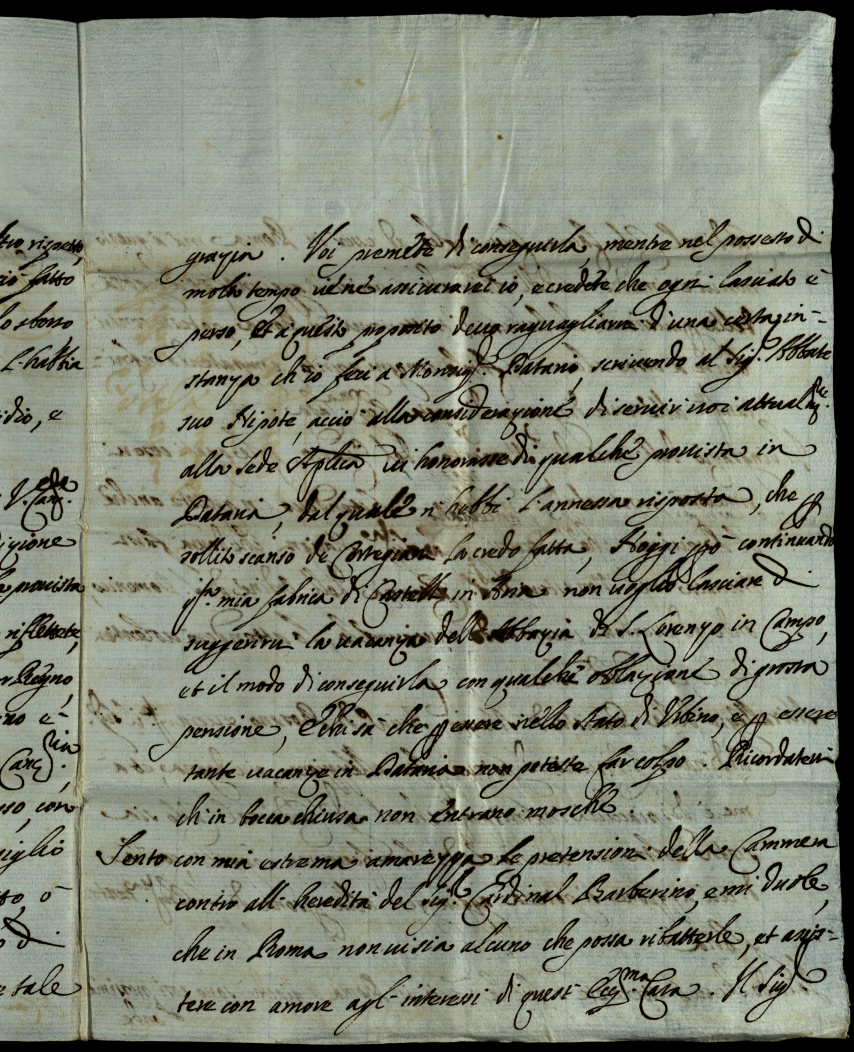 grazia. Voi premete di conseguirla, mentre nel possesso di
molto tempo ve ne assicurarei io, e credete che ogni lasciato è
perso, et a questo proposito devo raguagliarvi d'una certa in-
stanza ch'io feci a Monsig.r Datario, scrivendo al Sig.r Abbate
suo Nipote, acciò alla considerazione di servir voi attualm.te
alla Sede Aplica vi honorasse di qualche provista in
Dataria, dal quale n'hebbi l'annessa risposta, che
solito scanso de Corteggiani la credo fatta, Hoggi però continuando
mia fabrica di Castelli in Aria non voglio lasciare di
suggerirvi la vacanza dell'Abbazia di S. Lorenzo in Campo,
et il modo di conseguirla con qualche oblazione di grossa
pensione, e chi sà che per essere nello Stato di Urbino, e per essere
tante vacanze in Dataria non poteste far colpo. Ricordatevi
ch'in bocca chiusa non entrano mosche.
Sento con mia estrema amarezza le pretensioni della Cammera
contro all'heredità del Sig.r Cardinal Barberino, e mi duole,
che in Roma non vi sia alcuno che possa ribatterle, et assis-
tere con amore agl'interessi di quest' Ecc.ma Casa. Il Sig.r
tro rispetto,
ciò fatto
lo sborso
l'habbia
idio, e
V.
izione
la provista
riflettete,
Regno,
no è
Canc
so, con
siglio
tto, ò
di
e tale